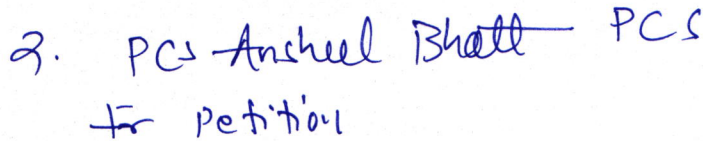 2. PCS Ansheel Bhatt PCS
for Petition